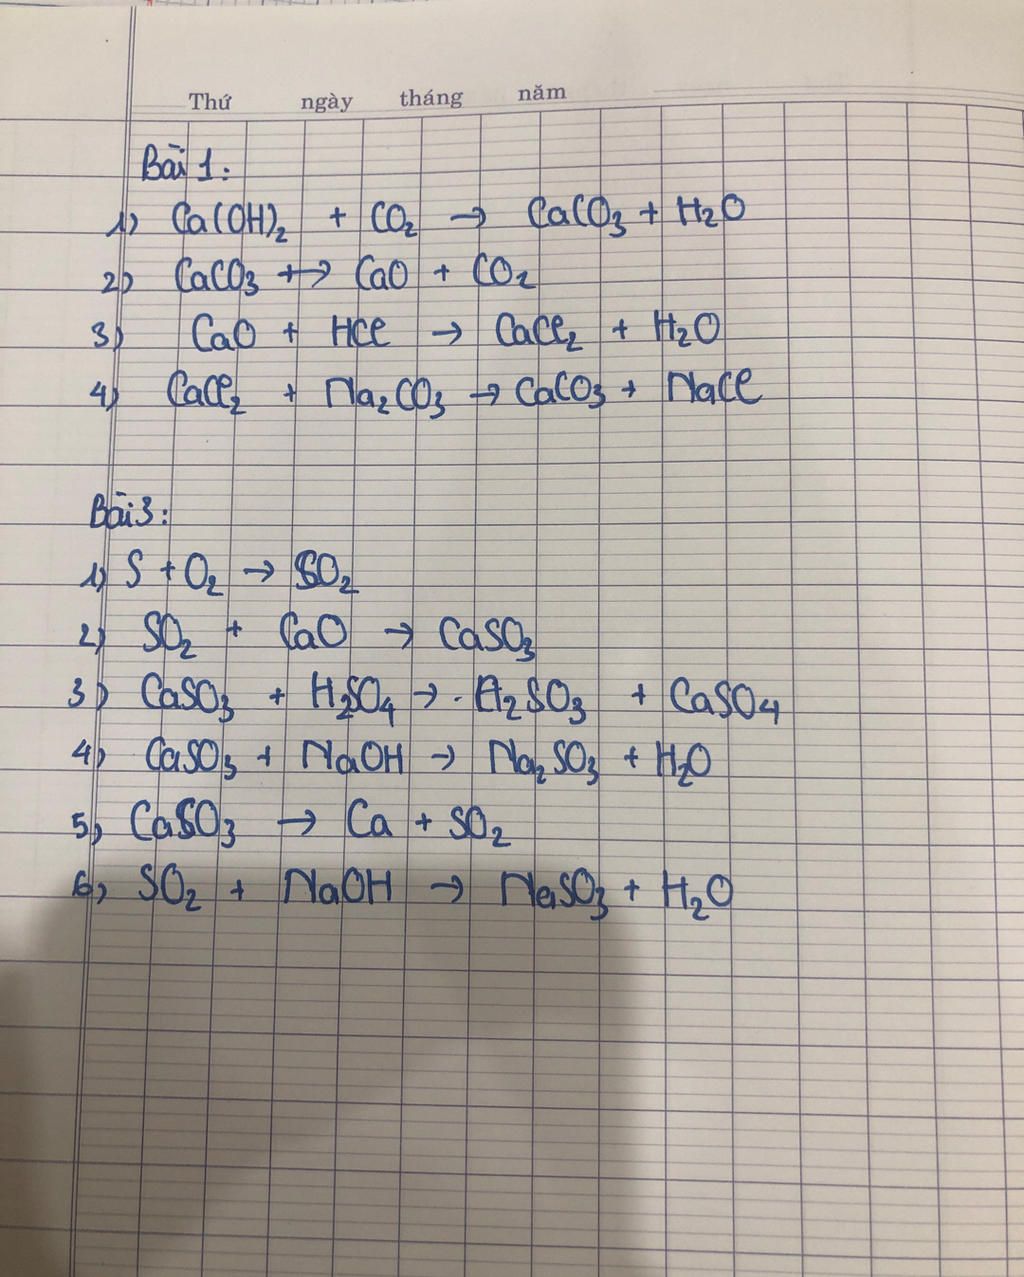 Thứ ngày tháng năm
Bài 1:
1) Ca(OH)₂ + CO₂ → CaCO₃ + H₂O
2) CaCO₃ +→ CaO + CO₂
3) CaO + HCl → CaCl₂ + H₂O
4) CaCl₂ + Na₂CO₃ → CaCO₃ + NaCl
Bài 3:
1) S + O₂ → SO₂
2) SO₂ + CaO → CaSO₃
3) CaSO₃ + H₂SO₄ → H₂SO₃ + CaSO₄
4) CaSO₃ + NaOH → Na₂SO₃ + H₂O
5) CaSO₃ → Ca + SO₂
6) SO₂ + NaOH → NaSO₃ + H₂O